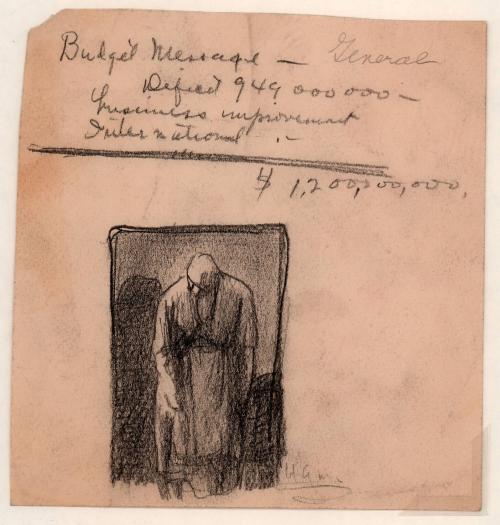 Budget Message — General
Deficit 949 000 000 —
business improvement
International . —
$ 1,200,000,000.